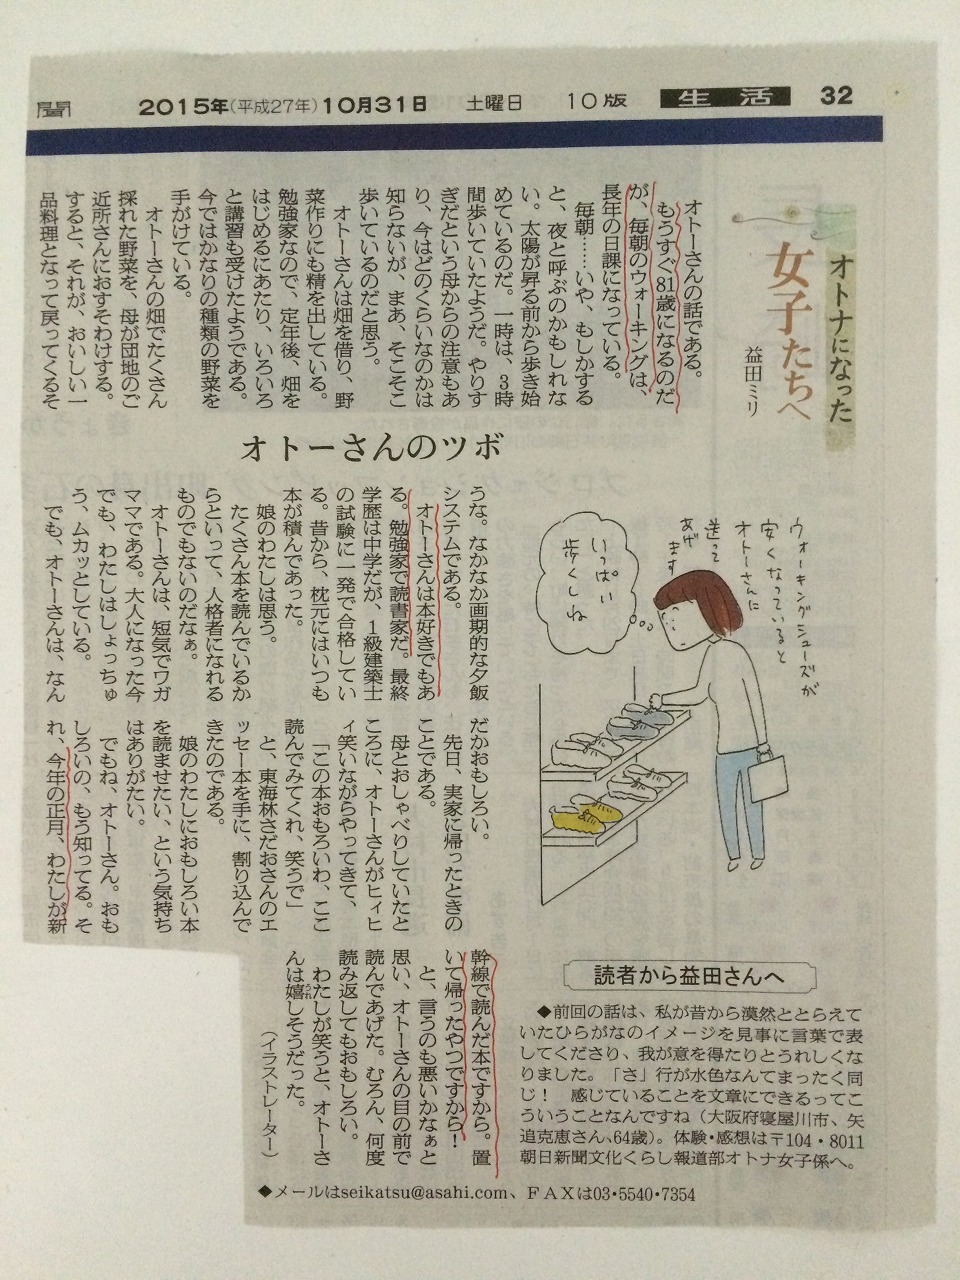 聞 2015年(平成27年)10月31日 土曜日 10版 生活 32
オトナになった
女子たちへ
益田ミリ
オトーさんの話である。
もうすぐ81歳になるのだ
が、毎朝のウォーキングは、
長年の日課になっている。
毎朝……いや、もしかする
と、夜と呼ぶのかもしれな
い。太陽が昇る前から歩き始
めているのだ。一時は、3時
間歩いていたようだ。やりす
ぎだという母からの注意もあ
り、今はどのくらいなのかは
知らないが、まあ、そこそこ
歩いているのだと思う。
オトーさんは畑を借り、野
菜作りにも精を出している。
勉強家なので、定年後、畑を
はじめるにあたり、いろいろ
と講習も受けたようである。
今ではかなりの種類の野菜を
手がけている。
オトーさんの畑でたくさん
採れた野菜を、母が団地のご
近所さんにおすそわけする。
すると、それが、おいしい一
品料理となって戻ってくるそ
オトーさんのツボ
うな。なかなか画期的な夕飯
システムである。
オトーさんは本好きでもあ
る。勉強家で読書家だ。最終
学歴は中学だが、1級建築士
の試験に一発で合格してい
る。昔から、枕元にはいつも
本が積んであった。
娘のわたしは思う。
たくさん本を読んでいるか
らといって、人格者になれる
ものでもないのだなぁ。
オトーさんは、短気でワガ
ママである。大人になった今
でも、わたしはしょっちゅ
う、ムカッとしている。
でも、オトーさんは、なん
だかおもしろい。
先日、実家に帰ったときの
ことである。
母とおしゃべりしていたと
ころに、オトーさんがヒィヒ
ィ笑いながらやってきて、
「この本おもろいわ、ここ
読んでみてくれ、笑うで」
と、東海林さだおさんのエ
ッセー本を手に、割り込んで
きたのである。
娘のわたしにおもしろい本
を読ませたい、という気持ち
はありがたい。
でもね、オトーさん。おも
しろいの、もう知ってる。そ
れ、今年の正月、わたしが新
幹線で読んだ本ですから。置
いて帰ったやつですから!
と、言うのも悪いかなぁと
思い、オトーさんの目の前で
読んであげた。むろん、何度
読み返してもおもしろい。
わたしが笑うと、オトーさ
んは嬉しそうだった。
うれ
(イラストレーター)
ウォーキングシューズが
安くなっていると
オトーさんに
送って
あげ
ます
いっぱい
歩くしね
読者から益田さんへ
◆前回の話は、私が昔から漠然ととらえて
いたひらがなのイメージを見事に言葉で表
してくださり、我が意を得たりとうれしくな
りました。「さ」行が水色なんてまったく同
じ! 感じていることを文章にできるってこ
ういうことなんですね(大阪府寝屋川市、矢
追克恵さん、64歳)。体験・感想は〒104・8011
朝日新聞文化くらし報道部オトナ女子係へ。
◆メールはseikatsu@asahi.com、FAXは03・5540・7354